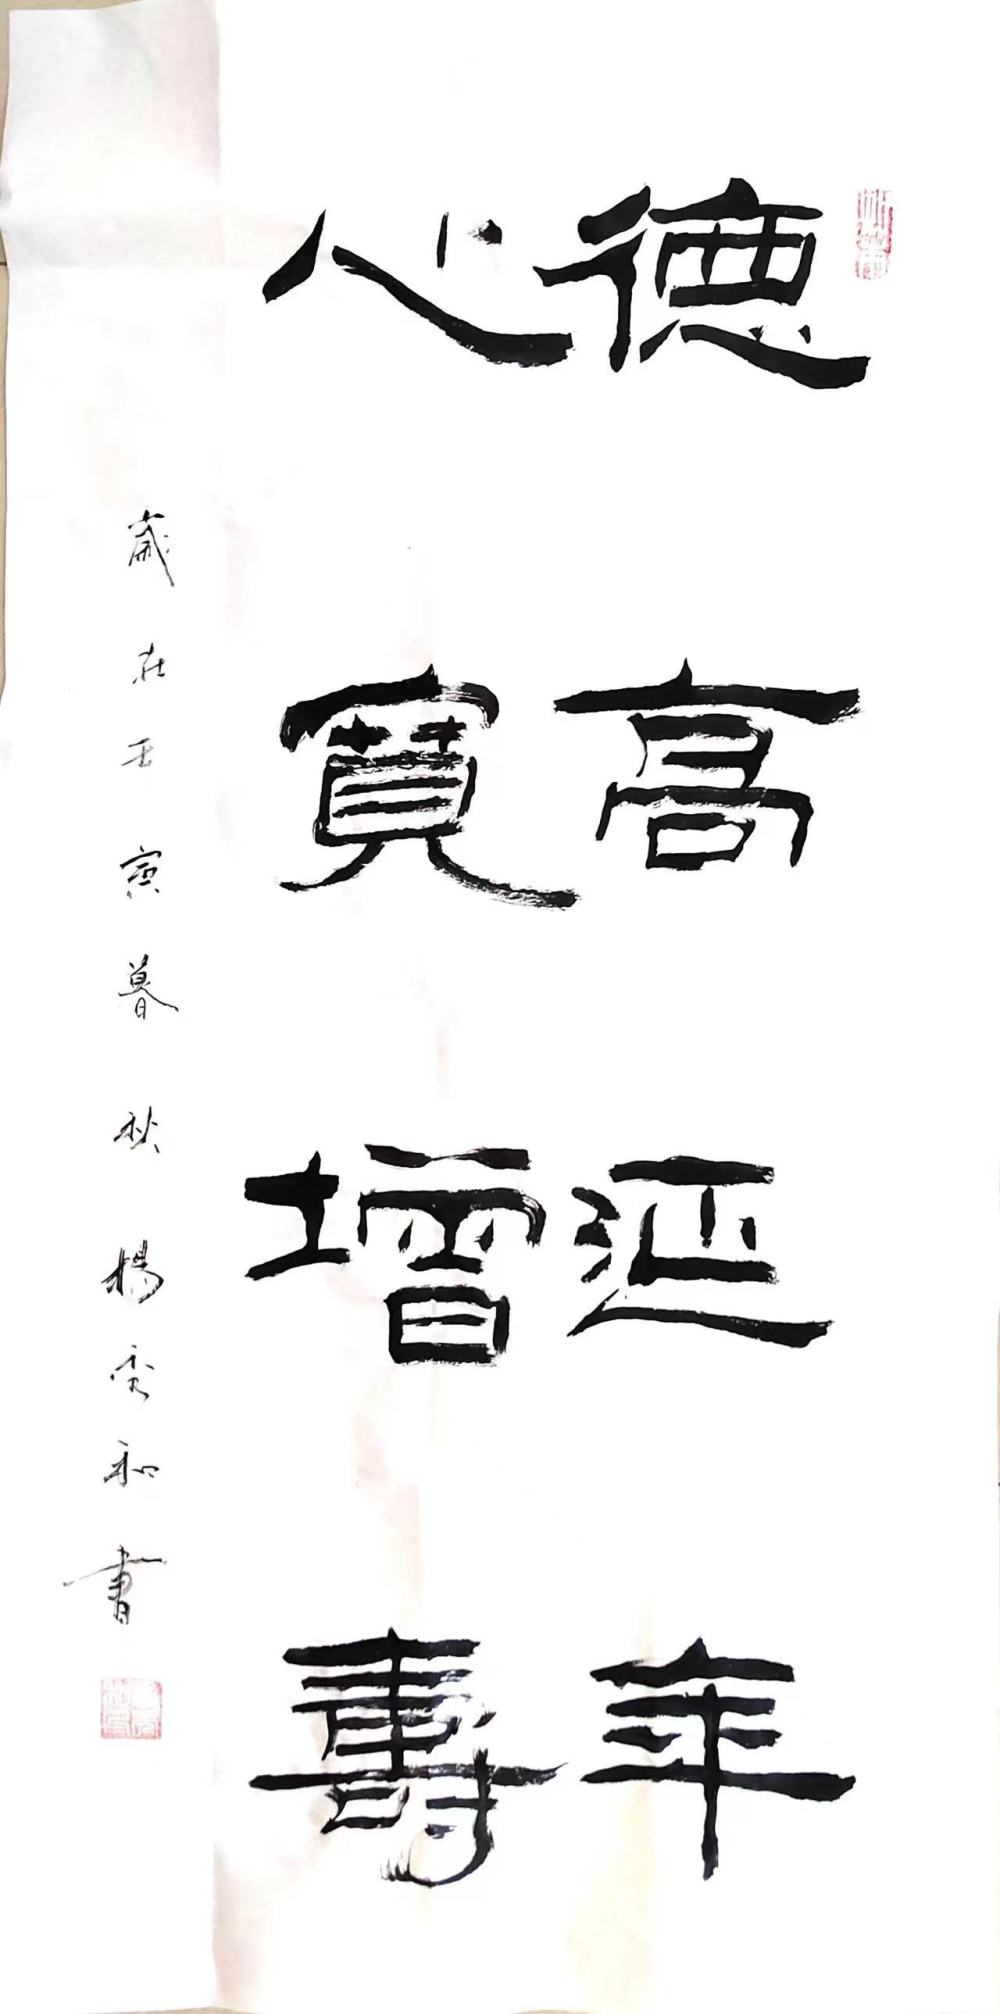 德高延年
心寬增壽
歲在壬寅暮秋楊秀和書